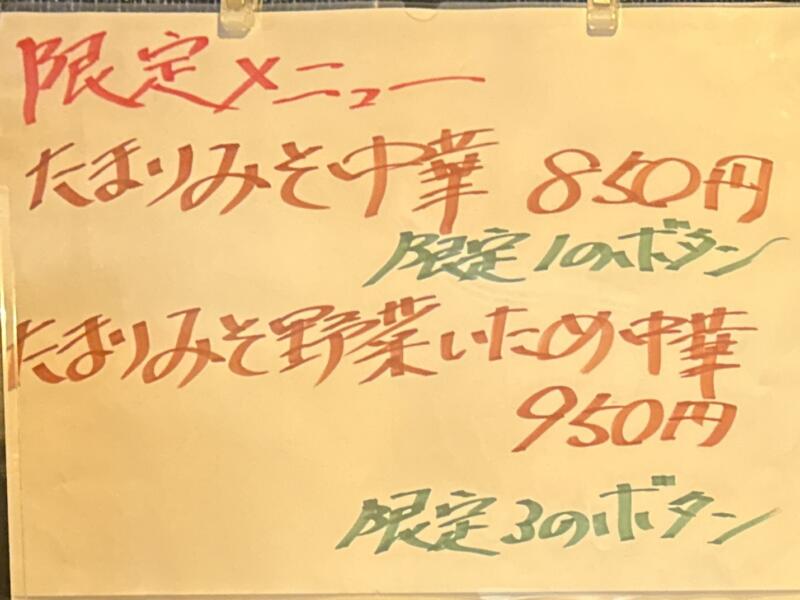 限定メニュー
たまりみそ中華 850円
限定1のボタン
たまりみそ野菜いため中華
950円
限定3のボタン